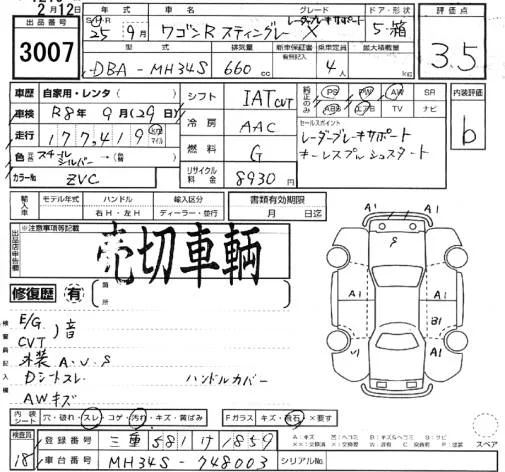 2月12日
出品番号
3007
年式 車名 グレード ドア・形状 評価点
25年 9月 ワゴンR スティングレー レーダーブレーキサポート X 5・箱 3.5
型式 排気量 新車保証書 乗車定員 最大積載量
有無記入
DBA-MH34S 660cc 4人 kg
車歴 自家用・レンタ( )
車検 R8年 9月(29日)
走行 177,419 km マイル
色 元色 スチールシルバー→(替 )
カラーNo ZVC
シフト IAT CVT
冷房 AAC
燃料 G
リサイクル料金 8930円
純正のみ PS PW AW SR
ABS エアB TV ナビ
内装評価
b
セールスポイント
レーダーブレーキサポート
キーレスプッシュスタート
輸入車 モデル年式 ハンドル 輸入区分
年 右H・左H ディーラー・並行
書類有効期限
月 日迄
出品店申告欄
※注意事項等記載
売切車輌
修復歴 有 箇所
検査員記入欄
E/G
CVT )音
外装 A.U.S
Dシートスレ ハンドルカバー
AWキズ
A1 A1
S
A1 A1
B1
A1 A1
スペア
内装シート 穴・破れ・スレ・コゲ・汚れ・キズ・黄ばみ Fガラス キズ・飛石・×要す
検査員
18
登録番号 三重 581 け 1859
車台番号 MH34S-748003 シリアルNo.